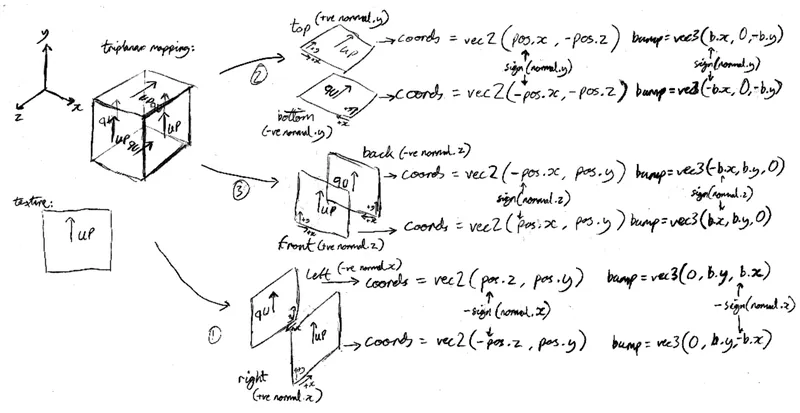 y
x
z
triplanar mapping:
UP
UP
UP
UP
UP
texture:
UP
②
top (+ve normal.y)
UP
+y
+x
→ coords = vec2(pos.x, -pos.z)
bump=vec3(b.x, 0, -b.y)
sign(normal.y)
sign(normal.y)
UP
+y
+x
→ coords = vec2(-pos.x, -pos.z)
bump=vec3(-b.x, 0, -b.y)
bottom
(-ve normal.y)
③
back (-ve normal.z)
UP
+y
+x
→ coords = vec2(-pos.x, pos.y)
bump=vec3(-b.x, b.y, 0)
sign(normal.z)
sign(normal.z)
UP
+y
+x
→ coords = vec2(pos.x, pos.y)
bump=vec3(b.x, b.y, 0)
front (+ve normal.z)
①
left (-ve normal.x)
UP
+y
+x
→ coords = vec2(pos.z, pos.y)
bump=vec3(0, b.y, b.x)
-sign(normal.x)
-sign(normal.x)
UP
+y
+x
→ coords = vec2(-pos.z, pos.y)
bump=vec3(0, b.y, -b.x)
right
(+ve normal.x)